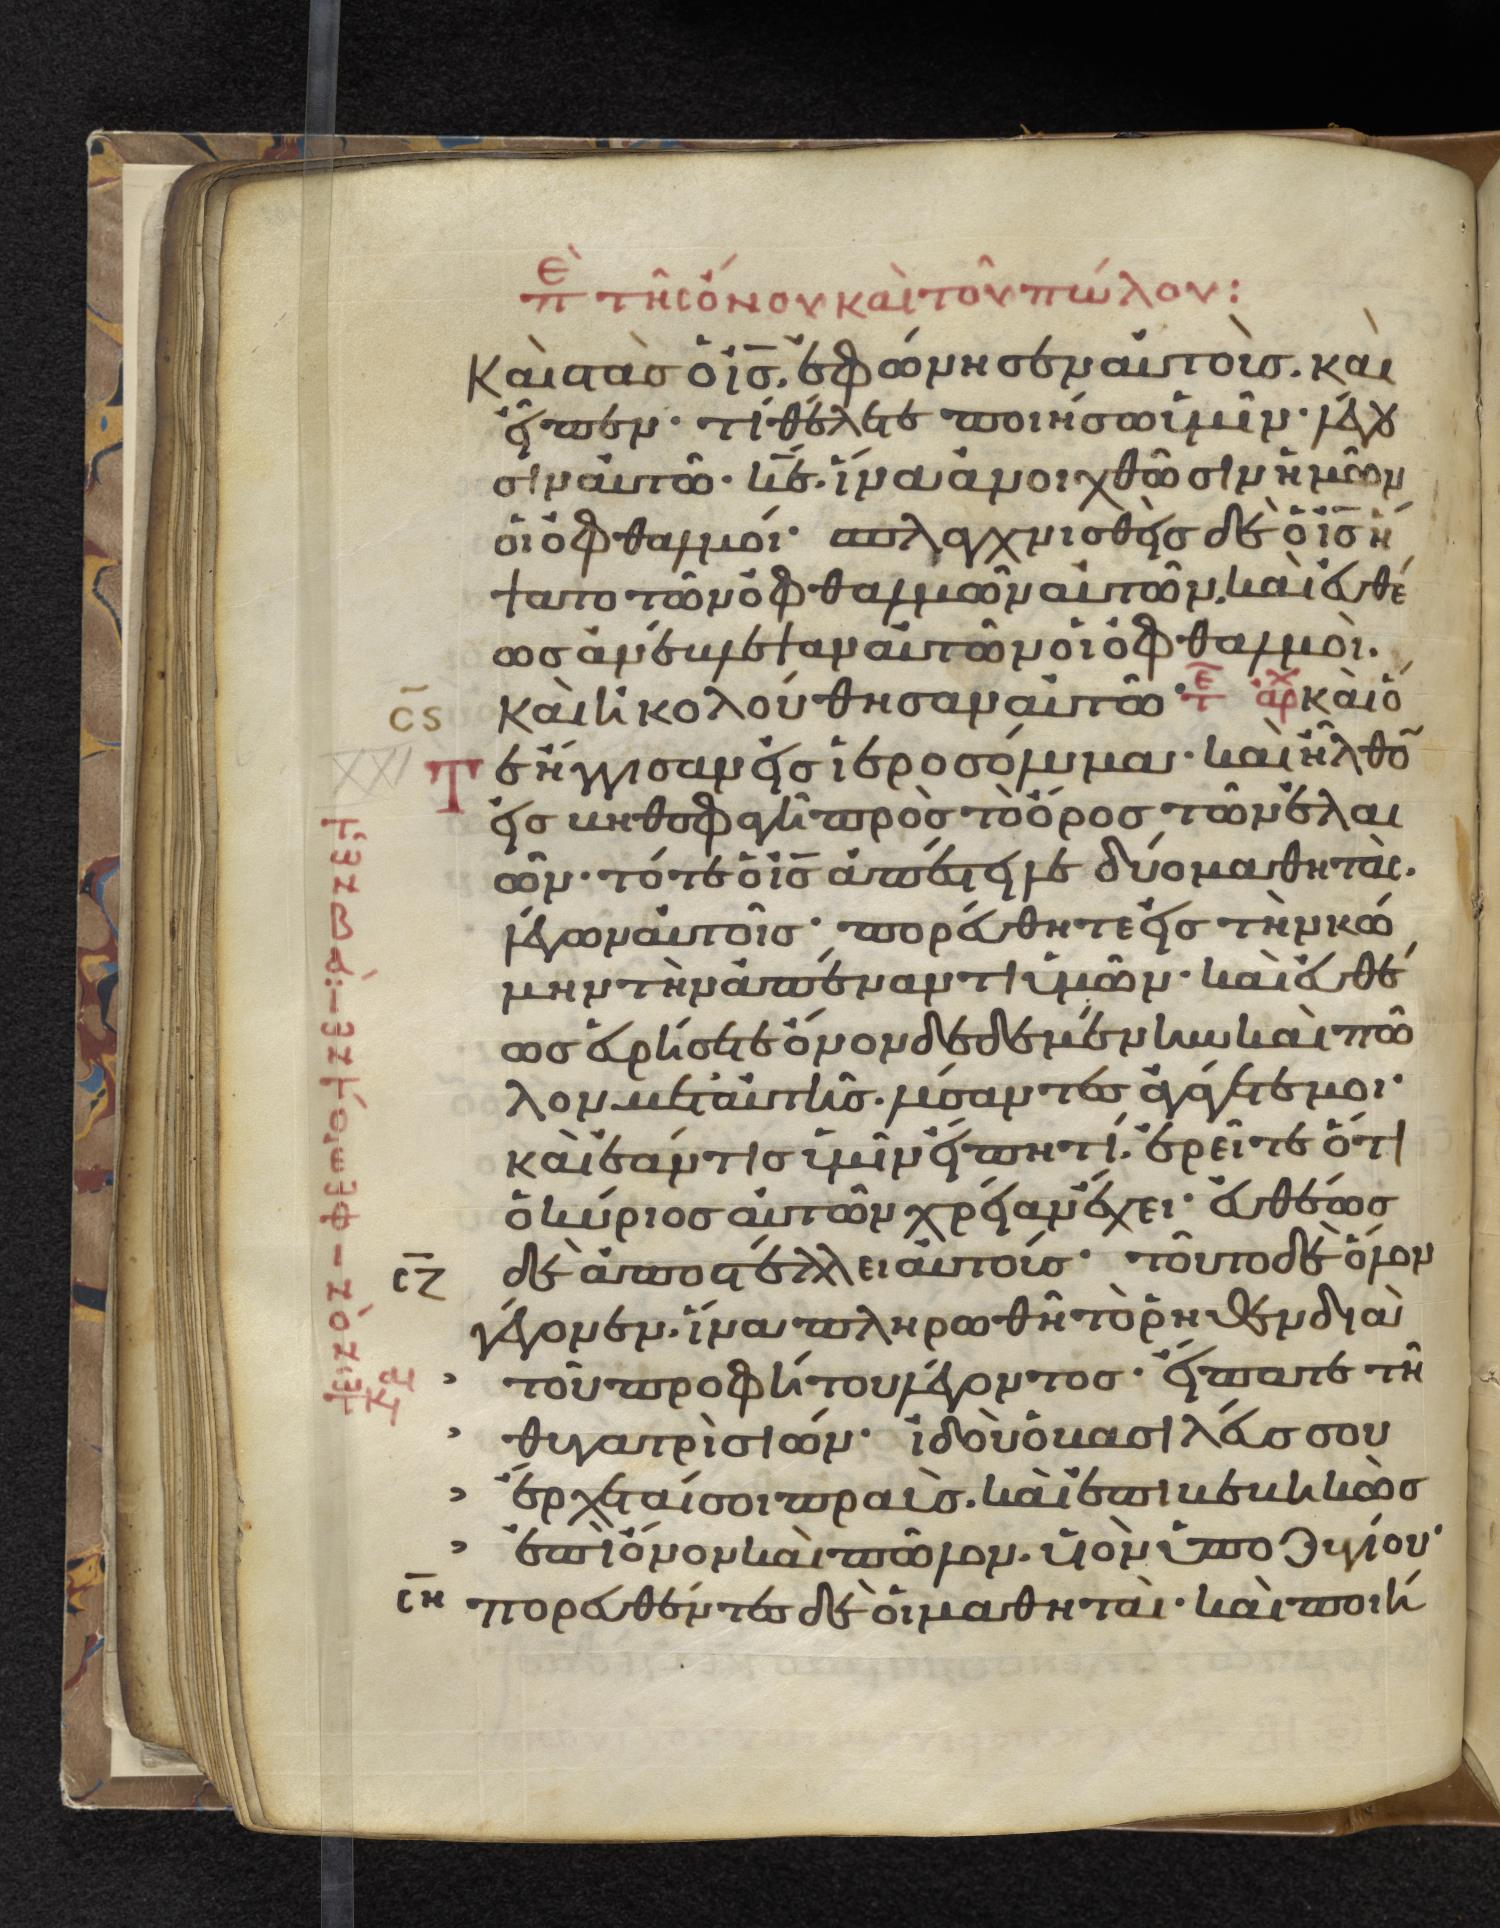 Ἐπ τῆς ὄνου καὶ τοῦ πώλου:
Καὶ στὰς ὁ ις̅. ἐφώνησεν αὐτοὺς. καὶ
εἶπεν· τί θέλετε ποιήσω ὑμῖν· λέγου
σιν αὐτῶ· κ̅ε̅. ἵνα ἀνοιχθῶσιν ἡμῶν
οἱ ὀφθαλμοί· σπλαγχνισθεὶς δὲ ὁ ις̅ ἥ
ψατο τῶν ὀφθαλμῶν αὐτῶν. καὶ εὐθέ
ως ἀνέβλεψαν αὐτῶν οἱ ὀφθαλμοὶ.
ς̅ς καὶ ἠκολούθησαν αὐτῶ· τ̅ε̅ ἀρχ καὶ ὅ
Τ ε ἤγγισαν εἰς ἱεροσόλυμα· καὶ ἦλθο̅
εἰς βηθσφαγῆ πρὸς τὸ ὄρος τῶν ἐλαι
ῶν· τότε ὁ ις̅ ἀπέστειλε δύο μαθητὰς.
λέγων αὐτοῖς· πορεύθητε εἰς τὴν κώ
μην τὴν ἀπέναντι ὑμῶν· καὶ εὐθέ
ως εὑρήσετε ὄνον δεδεμένην καὶ πῶ
λον μετ' αὐτῆς. λύσαντες ἀγάγετέ μοι·
καὶ ἐάν τις ὑμῖν εἴπη τί. ἐρεῖτε ὅτι
ὁ κύριος αὐτῶν χρείαν ἔχει· εὐθέως
ς̅ζ δὲ ἀποστέλλει αὐτούς· τοῦτο δὲ ὅλον
γέγονεν. ἵνα πληρωθῆ τὸ ῥηθὲν διὰ
τοῦ προφήτου λέγοντος· εἴπατε τῆ
θυγατρὶ σιών· ἰδοὺ ὁ βασιλεύς σου
ἔρχεταί σοι πραὺς. καὶ ἐπιβεβηκὼς
ἐπὶ ὄνον καὶ πῶλον. υἱὸν ὑποζυγίου·
ς̅η πορευθέντες δὲ οἱ μαθηταὶ· καὶ ποιή